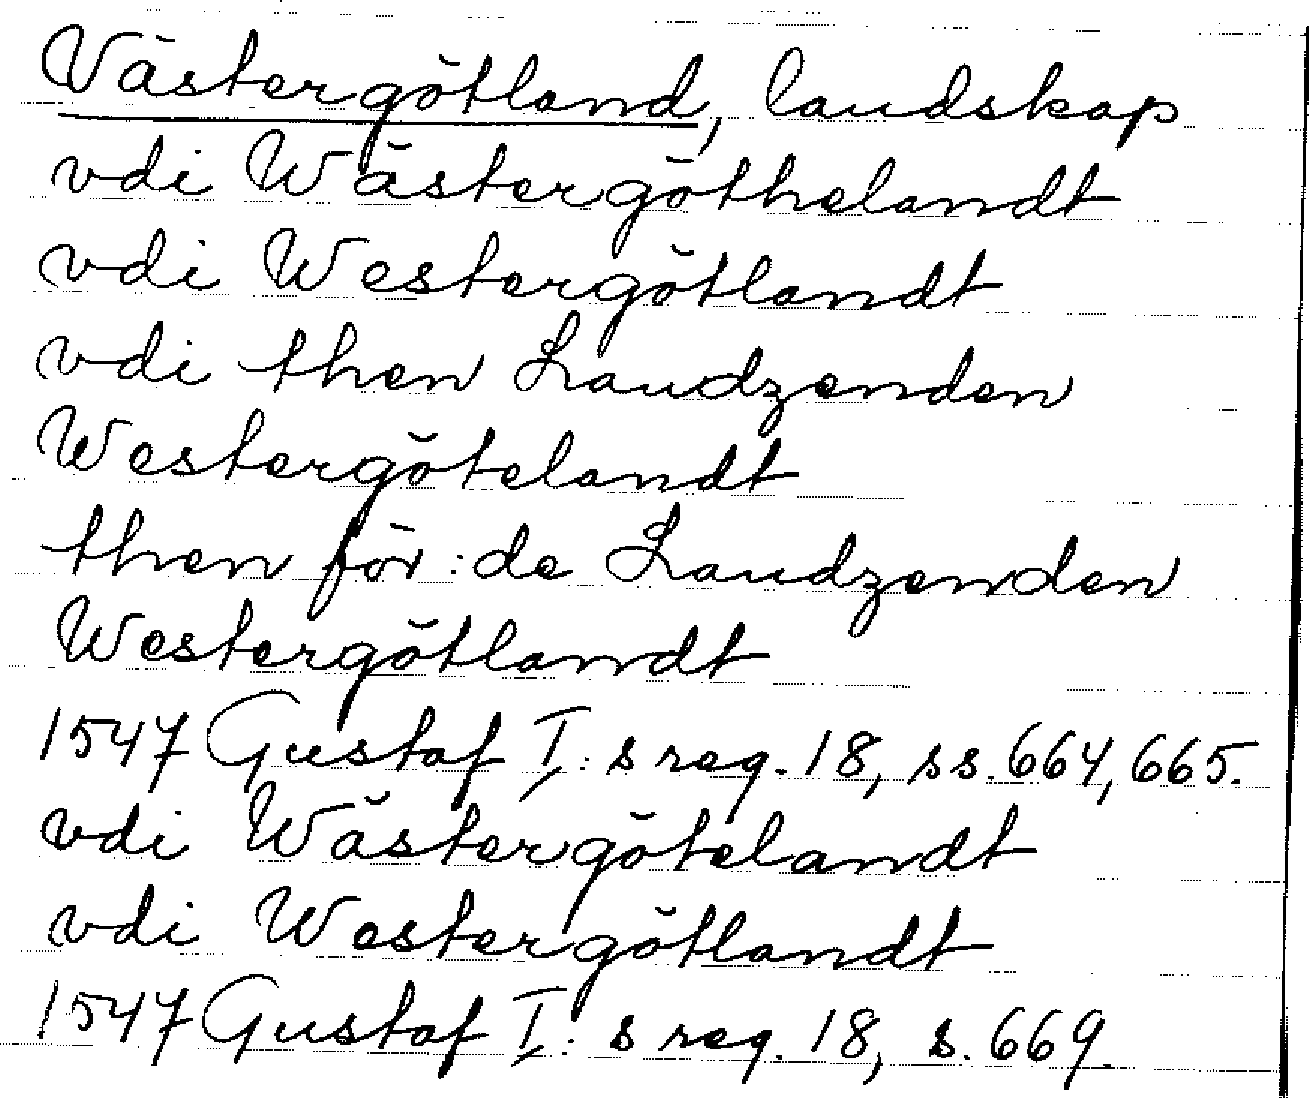 Västergötland, landskap
vdi Wästergöthelandt
vdi Westergötlandt
vdi then Landzenden
Westergötelandt
then för:de Landzenden
Westergötlandt
1547 Gustaf I:s reg. 18, ss. 664, 665.
vdi Wästergötelandt
vdi Westergötlandt
1547 Gustaf I:s reg. 18, s. 669.